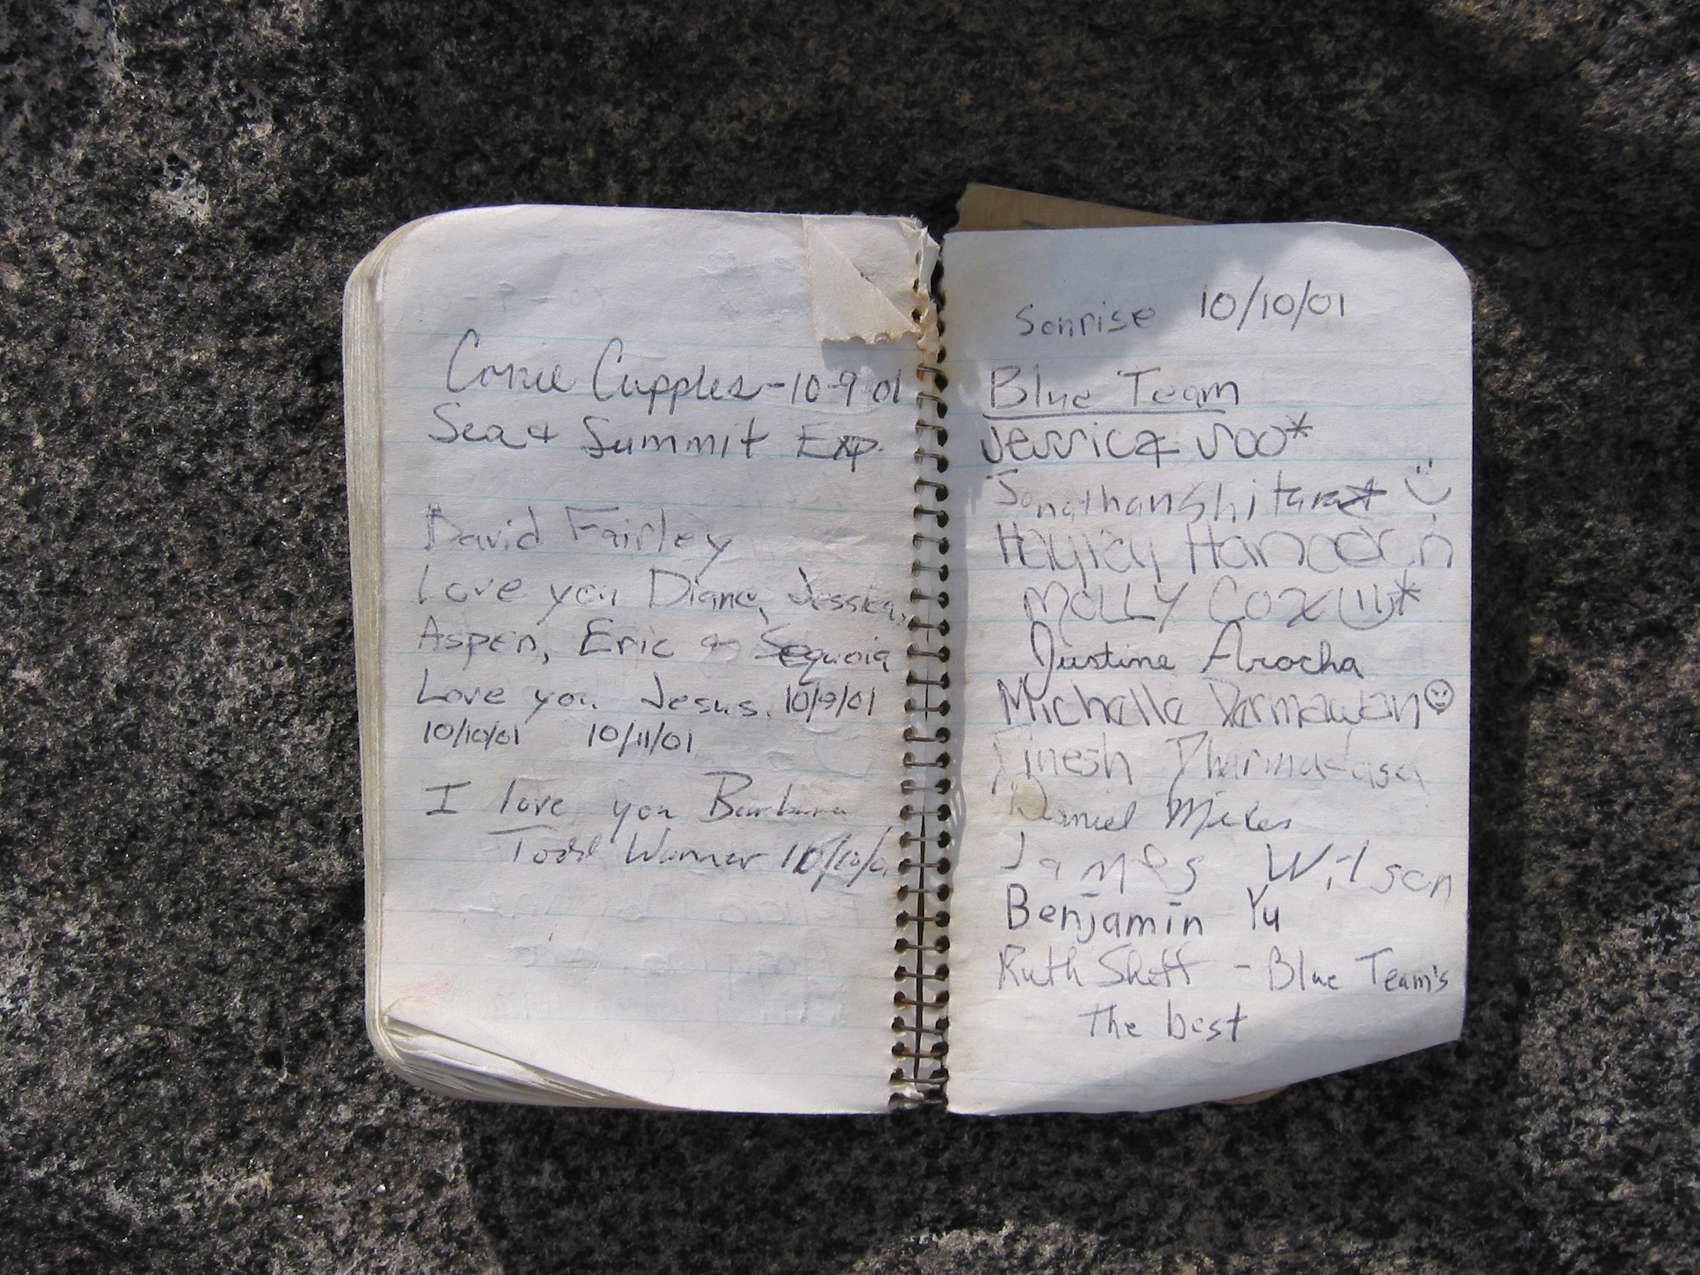 Cupples - 10-9 01
Sea & Summit Exp.
David Fairley
Love you Diane, Jessica,
Aspen, Eric & Sequoia
Love you Jesus. 10/9/01
10/10/01 10/11/01
I love you Barbara
Todd 10/10/0
Sonrise 10/10/01
Blue Team
Jessica Soo*
Jonathan
Hayley
MOLLY COX
Justine Arocha
Michelle Darmawan
Dinesh Dharmadasa
Daniel Miles
James Wilson
Benjamin Yu
Ruth - Blue Team's
the best